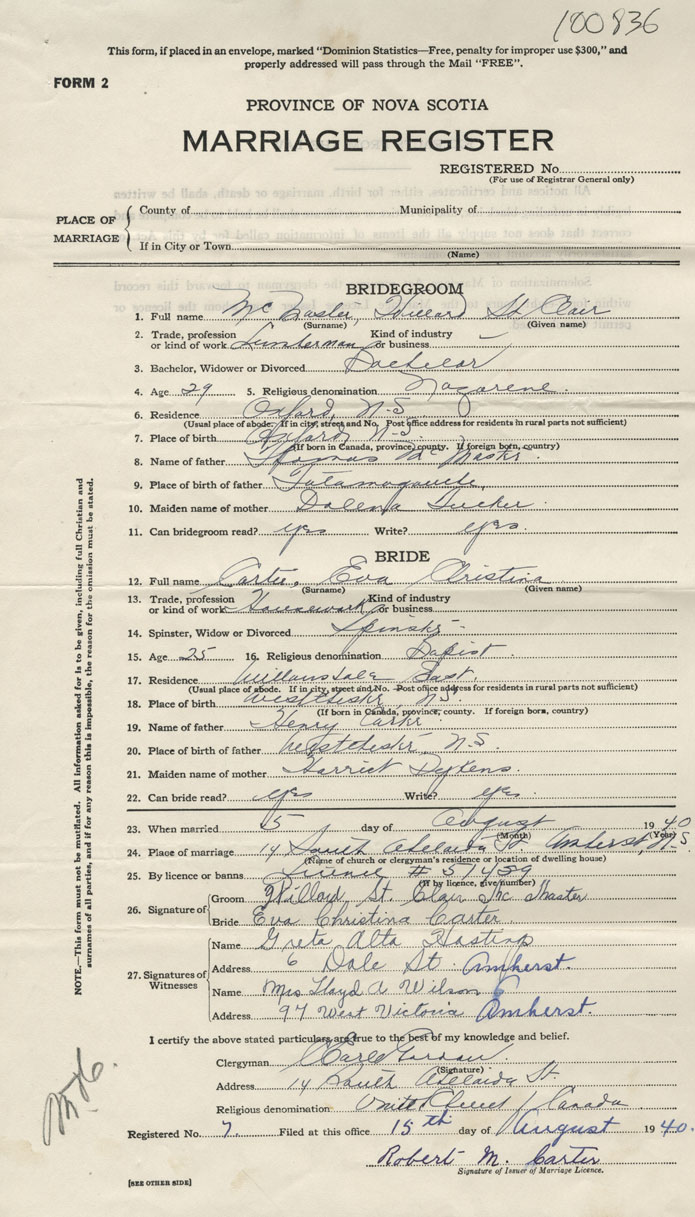 100836
This form, if placed in an envelope, marked "Dominion Statistics—Free, penalty for improper use $300," and
properly addressed will pass through the Mail "FREE".
FORM 2
PROVINCE OF NOVA SCOTIA
MARRIAGE REGISTER
REGISTERED No.
(For use of Registrar General only)
PLACE OF MARRIAGE
County of Municipality of
If in City or Town
(Name)
BRIDEGROOM
1. Full name McMaster, Willard St. Clair
(Surname) (Given name)
2. Trade, profession or kind of work Lumberman Kind of industry or business
3. Bachelor, Widower or Divorced Bachelor
4. Age 29 5. Religious denomination Nazarene
6. Residence Oxford, N.S.
(Usual place of abode. If in city, street and No. Post office address for residents in rural parts not sufficient)
7. Place of birth Oxford N.S.
(If born in Canada, province, county. If foreign born, country)
8. Name of father Thomas McMaster
9. Place of birth of father Tatamagouche
10. Maiden name of mother Tucker
11. Can bridegroom read? yes Write? yes
BRIDE
12. Full name Carter, Eva Christina
(Surname) (Given name)
13. Trade, profession or kind of work Housework Kind of industry or business
14. Spinster, Widow or Divorced Spinster
15. Age 25 16. Religious denomination Baptist
17. Residence East
(Usual place of abode. If in city, street and No. Post office address for residents in rural parts not sufficient)
18. Place of birth Westchester, N.S.
(If born in Canada, province, county. If foreign born, country)
19. Name of father Henry Carter
20. Place of birth of father Westchester N.S.
21. Maiden name of mother Harriet
22. Can bride read? yes Write? yes
23. When married 5 day of August 1940
(Month) (Year)
24. Place of marriage 14 South Adelaide St Amherst, N.S.
(Name of church or clergyman's residence or location of dwelling house)
25. By licence or banns Licence # 51459
(If by licence, give number)
26. Signature of Groom Willard St. Clair McMaster
Bride Eva Christina Carter
27. Signatures of Witnesses
Name Greta Alta
Address 6 Dale St. Amherst.
Name Mrs Lloyd A Wilson
Address 97 West Victoria Amherst.
I certify the above stated particulars are true to the best of my knowledge and belief.
Clergyman
(Signature)
Address 14 South Adelaide St
Religious denomination United Church / Canada
Registered No. 7 Filed at this office 15th day of August 1940.
Robert M. Carter
Signature of Issuer of Marriage Licence.
[SEE OTHER SIDE]
NOTE.—This form must not be mutilated. All information asked for is to be given, including full Christian and
surnames of all parties, and if for any reason this is impossible, the reason for the omission must be stated.